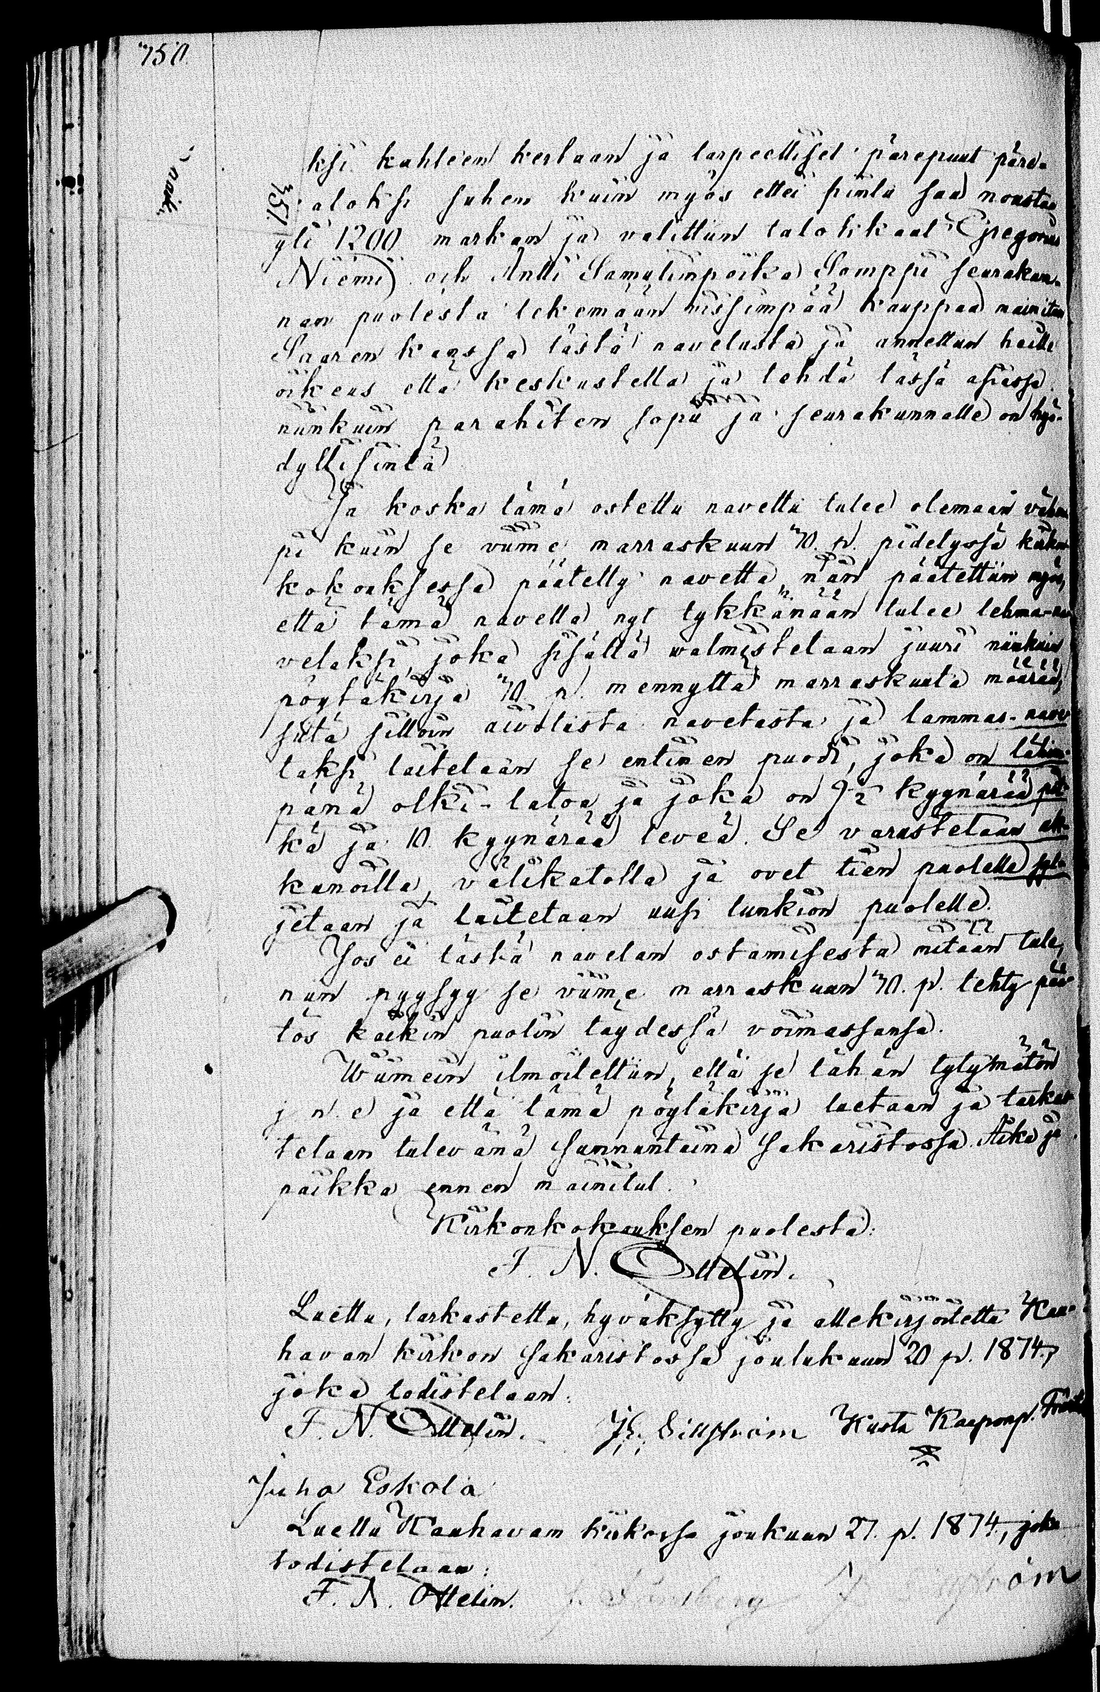 750.
351
ksi kahteen kertaan ja tarpeelliset pärepuut päre-
aloksi siihen kuin myös ettei hinta saa nousta
yli 1200 markan ja valittiin talolliset Gregorius
Niemi och Antti Samulinpoika Somppi seurakun-
nan puolesta tekemään vissimpää kauppaa mainitun
Saaren kanssa tästä navetasta ja annettiin heille
oikeus että keskustella ja tehdä tässä asiassa
niinkuin parahiten sopii ja seurakunnalle on hyö-
dyllisintä
Ja koska tämä ostettu navetta tulee olemaan
pi kuin se viime marraskuun 70. p. pidetyssä
kokouksessa päätetty navetta, niin päätettiin myös,
että tämä navetta nyt tykkänään tulee lehmä-na-
vetaksi, joka sisältä walmistetaan juuri niinkuin
pöytäkirja 70. p. mennyttä marraskuuta määrää,
siitä silloin aivotusta navetasta ja lammas-navet
taksi laitetaan se entinen puori, joka on lähim-
pänä olki-latoa ja joka on 9½ kyynärää pit-
kä ja 10 kyynärää leveä. Se varustetaan ak-
kunoilla, välikatolla ja ovet tien puolella sul-
jetaan ja laitetaan uusi tunkion puolelle.
Jos ei tästä navetan ostamisesta mitään tule,
niin pysyy se viime marraskuun 70. p. tehty pää-
tös kaikin puolin täydessä voimassansa.
Wiimein ilmoitettiin, että se tähän tytymätön
j. n. e. ja että tämä pöytäkirja luetaan ja tarkas-
tetaan tulevana sunnuntaina sakaristossa. Aika ja
paikka ennen mainitut.
Kirkonkokouksen puolesta:
F. N. Ottelin.
Luettu, tarkastettu, hyväksytty ja allekirjoitettu Kau-
havan kirkon sakaristossa joulukuun 20 p. 1874,
joka todistetaan:
F. N. Ottelin. Sillström Kusta Kaaponp.
Juho Eskola
Luettu Kauhavan kirkossa joukuun 27. p. 1874, joka
todistetaan:
F. N. Ottelin.